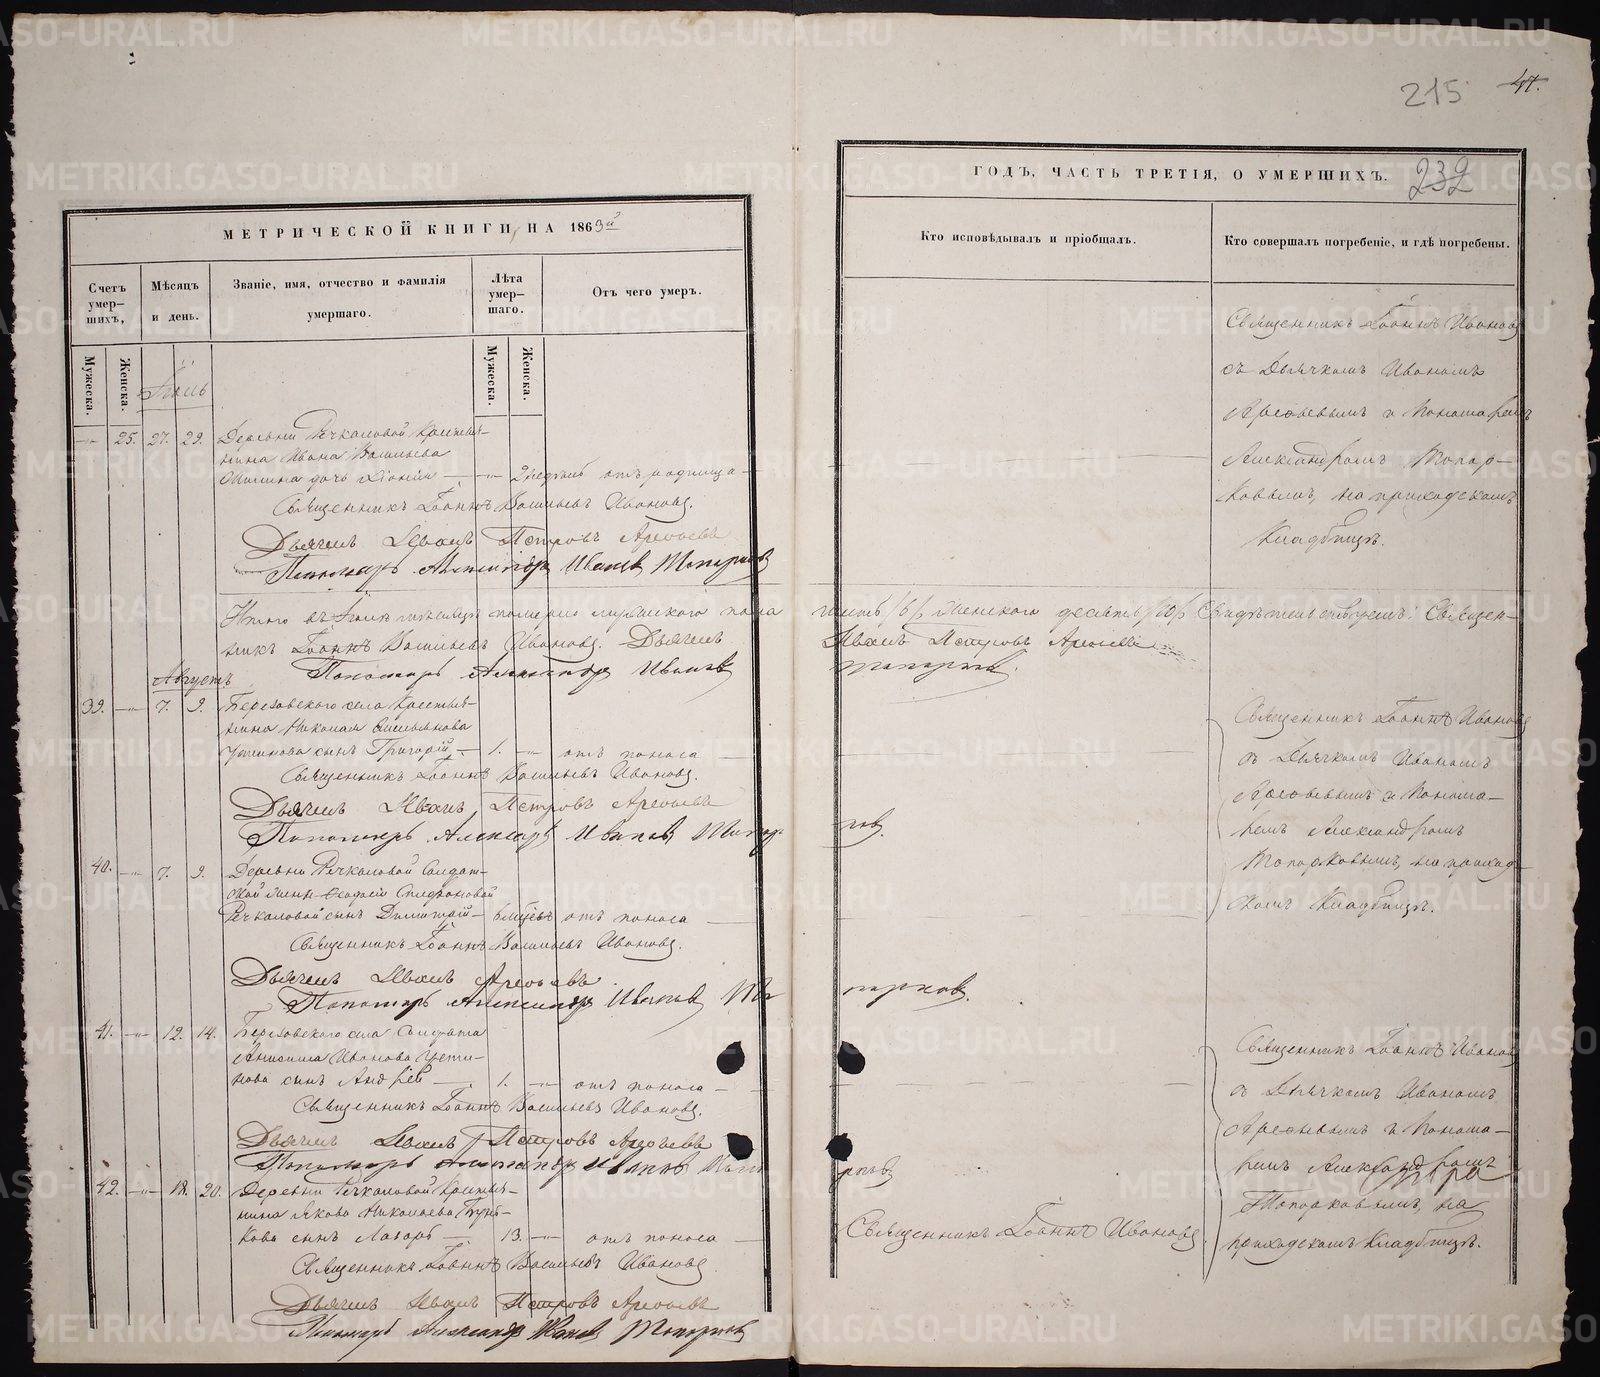 215 47.
232
МЕТРИЧЕСКОЙ КНИГИ НА 1863й
Счетъ умер–шихъ,
Мѣсяцъ и день.
Званіе, имя, отчество и фамилія умершаго.
Лѣта умер–шаго.
Отъ чего умеръ.
Мужеска.
Женска.
Мужеска.
Женска.
Іюль
25. 27. 29. Деревни Речкаловой Крестья–
нина Ивана Васильева
дочь
отъ родимца
Священникъ Іоаннъ Васильевъ Ивановъ.
Дьячекъ Иванъ Петровъ Арефьевъ
Пономарь Александръ Ивановъ Топорковъ
Итого въ Іюлѣ мѣсяцѣ померло мужескаго пола
никъ Іоаннъ Васильевъ Ивановъ. Дьячекъ
Пономарь Александръ Ивановъ
Августъ
39. 7. 9. Березовского села Крестья–
нина Николая Емельянова
Устинова сынъ Григорій 1. отъ поноса
Священникъ Іоаннъ Васильевъ Ивановъ.
Дьячекъ Иванъ Петровъ Арефьевъ
Пономарь Александръ Ивановъ Топор
40. 7. 9. Деревни Речкаловой Солдат–
ской жены
Речкаловой сынъ Димитрій 6 мѣсяц. отъ поноса
Священникъ Іоаннъ Васильевъ Ивановъ.
Дьячекъ Иванъ Арефьевъ
Пономарь Александръ Ивановъ То
41. 12. 14. Березовского села Солдата
Анисима Иванова Усти–
нова сынъ Андрей 1. отъ поноса
Священникъ Іоаннъ Васильевъ Ивановъ.
Дьячекъ Иванъ Петровъ Арефьевъ
Пономарь Александръ Ивановъ Топо
42. 18. 20. Деревни Речкаловой Крестья–
нина Якова Николаева
кова сынъ Лазарь 13. отъ поноса
Священникъ Іоаннъ Васильевъ Ивановъ
Дьячекъ Иванъ Петровъ Арефьевъ
Пономарь Александръ Ивановъ Топорковъ
ГОДЪ, ЧАСТЬ ТРЕТІЯ, О УМЕРШИХЪ.
Кто исповѣдывалъ и пріобщалъ.
Кто совершалъ погребеніе, и гдѣ погребены.
Священникъ Іоаннъ Ивановъ
съ Дьячкомъ Иваномъ
Арефьевымъ и Пономаремъ
Александромъ Топор–
ковымъ, на приходскомъ
Кладбищѣ.
шесть /6/, Женского десять /10/ Свидѣтельствуемъ: Священ–
Иванъ Петровъ Арефьевъ
Топорковъ.
Священникъ Іоаннъ Ивановъ
съ Дьячкомъ Иваномъ
Арефьевымъ и Понома–
ремъ Александромъ
Топорковымъ, на приход–
скомъ Кладбищѣ.
ковъ.
порковъ.
Священникъ Іоаннъ Ивановъ
съ Дьячкомъ Иваномъ
Арефьевымъ и Понома–
ремъ Александромъ
Топорковымъ, на
приходскомъ Кладбищѣ.
рковъ
Священникъ Іоаннъ Ивановъ
METRIKI.GASO-URAL.RU